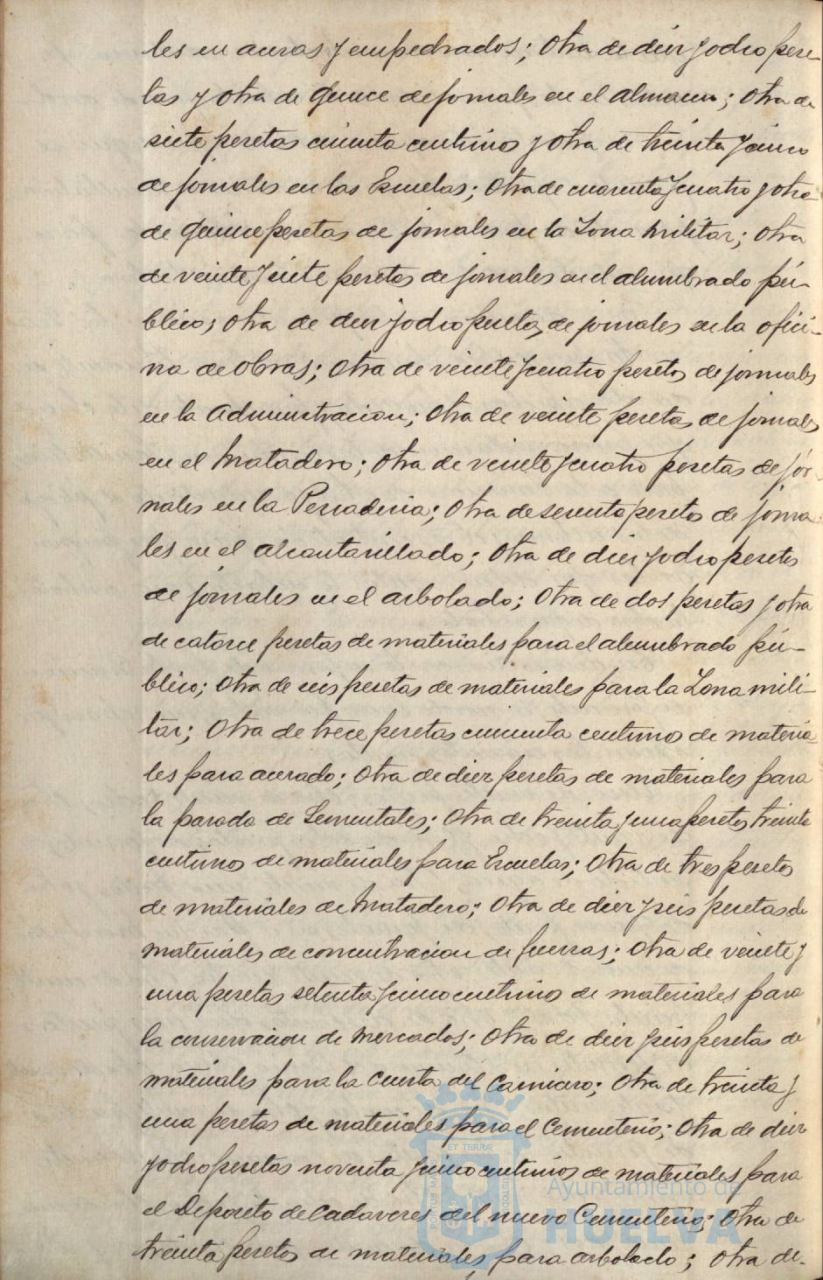 les en aceras y empedrados; Otra de diez y ocho pese-
tas y otra de quince de jornales en el almacen; Otra de
siete pesetas cincuenta centimos y otra de treinta y cinco
de jornales en las Escuelas; Otra de cuarenta y cuatro y otra
de quince pesetas de jornales en la Zona Militar; Otra
de veinte y siete pesetas de jornales en el alumbrado pú-
blico; Otra de diez y ocho pesetas de jornales en la ofici-
na de Obras; Otra de veinte y cuatro pesetas de jornales
en la Administracion; Otra de veinte pesetas de jornales
en el Matadero; Otra de veinte y cuatro pesetas de jor-
nales en la Pescaderia; Otra de sesenta pesetas de jorna-
les en el alcantarillado; Otra de diez y ocho pesetas
de jornales en el arbolado; Otra de dos pesetas y otra
de catorce pesetas de materiales para el alumbrado pú-
blico; Otra de seis pesetas de materiales para la Zona mili-
tar; Otra de trece pesetas cincuenta centimos de materia-
les para acerado; Otra de diez pesetas de materiales para
la parada de Sementales; Otra de treinta y una pesetas treinta
centimos de materiales para Escuelas; Otra de tres pesetas
de materiales de Matadero; Otra de diez y seis pesetas de
materiales de concentracion de fuerzas; Otra de veinte y
una pesetas setenta y cinco centimos de materiales para
la conservacion de Mercados; Otra de diez y seis pesetas de
materiales para la Cuesta del Carnicero; Otra de treinta y
una pesetas de materiales para el Cementerio; Otra de diez
y ocho pesetas noventa y cinco centimos de materiales para
el Deposito de Cadaveres del nuevo Cementerio; Otra de
treinta pesetas de materiales para arbolado; Otra de-
Ayuntamiento de
HUELVA